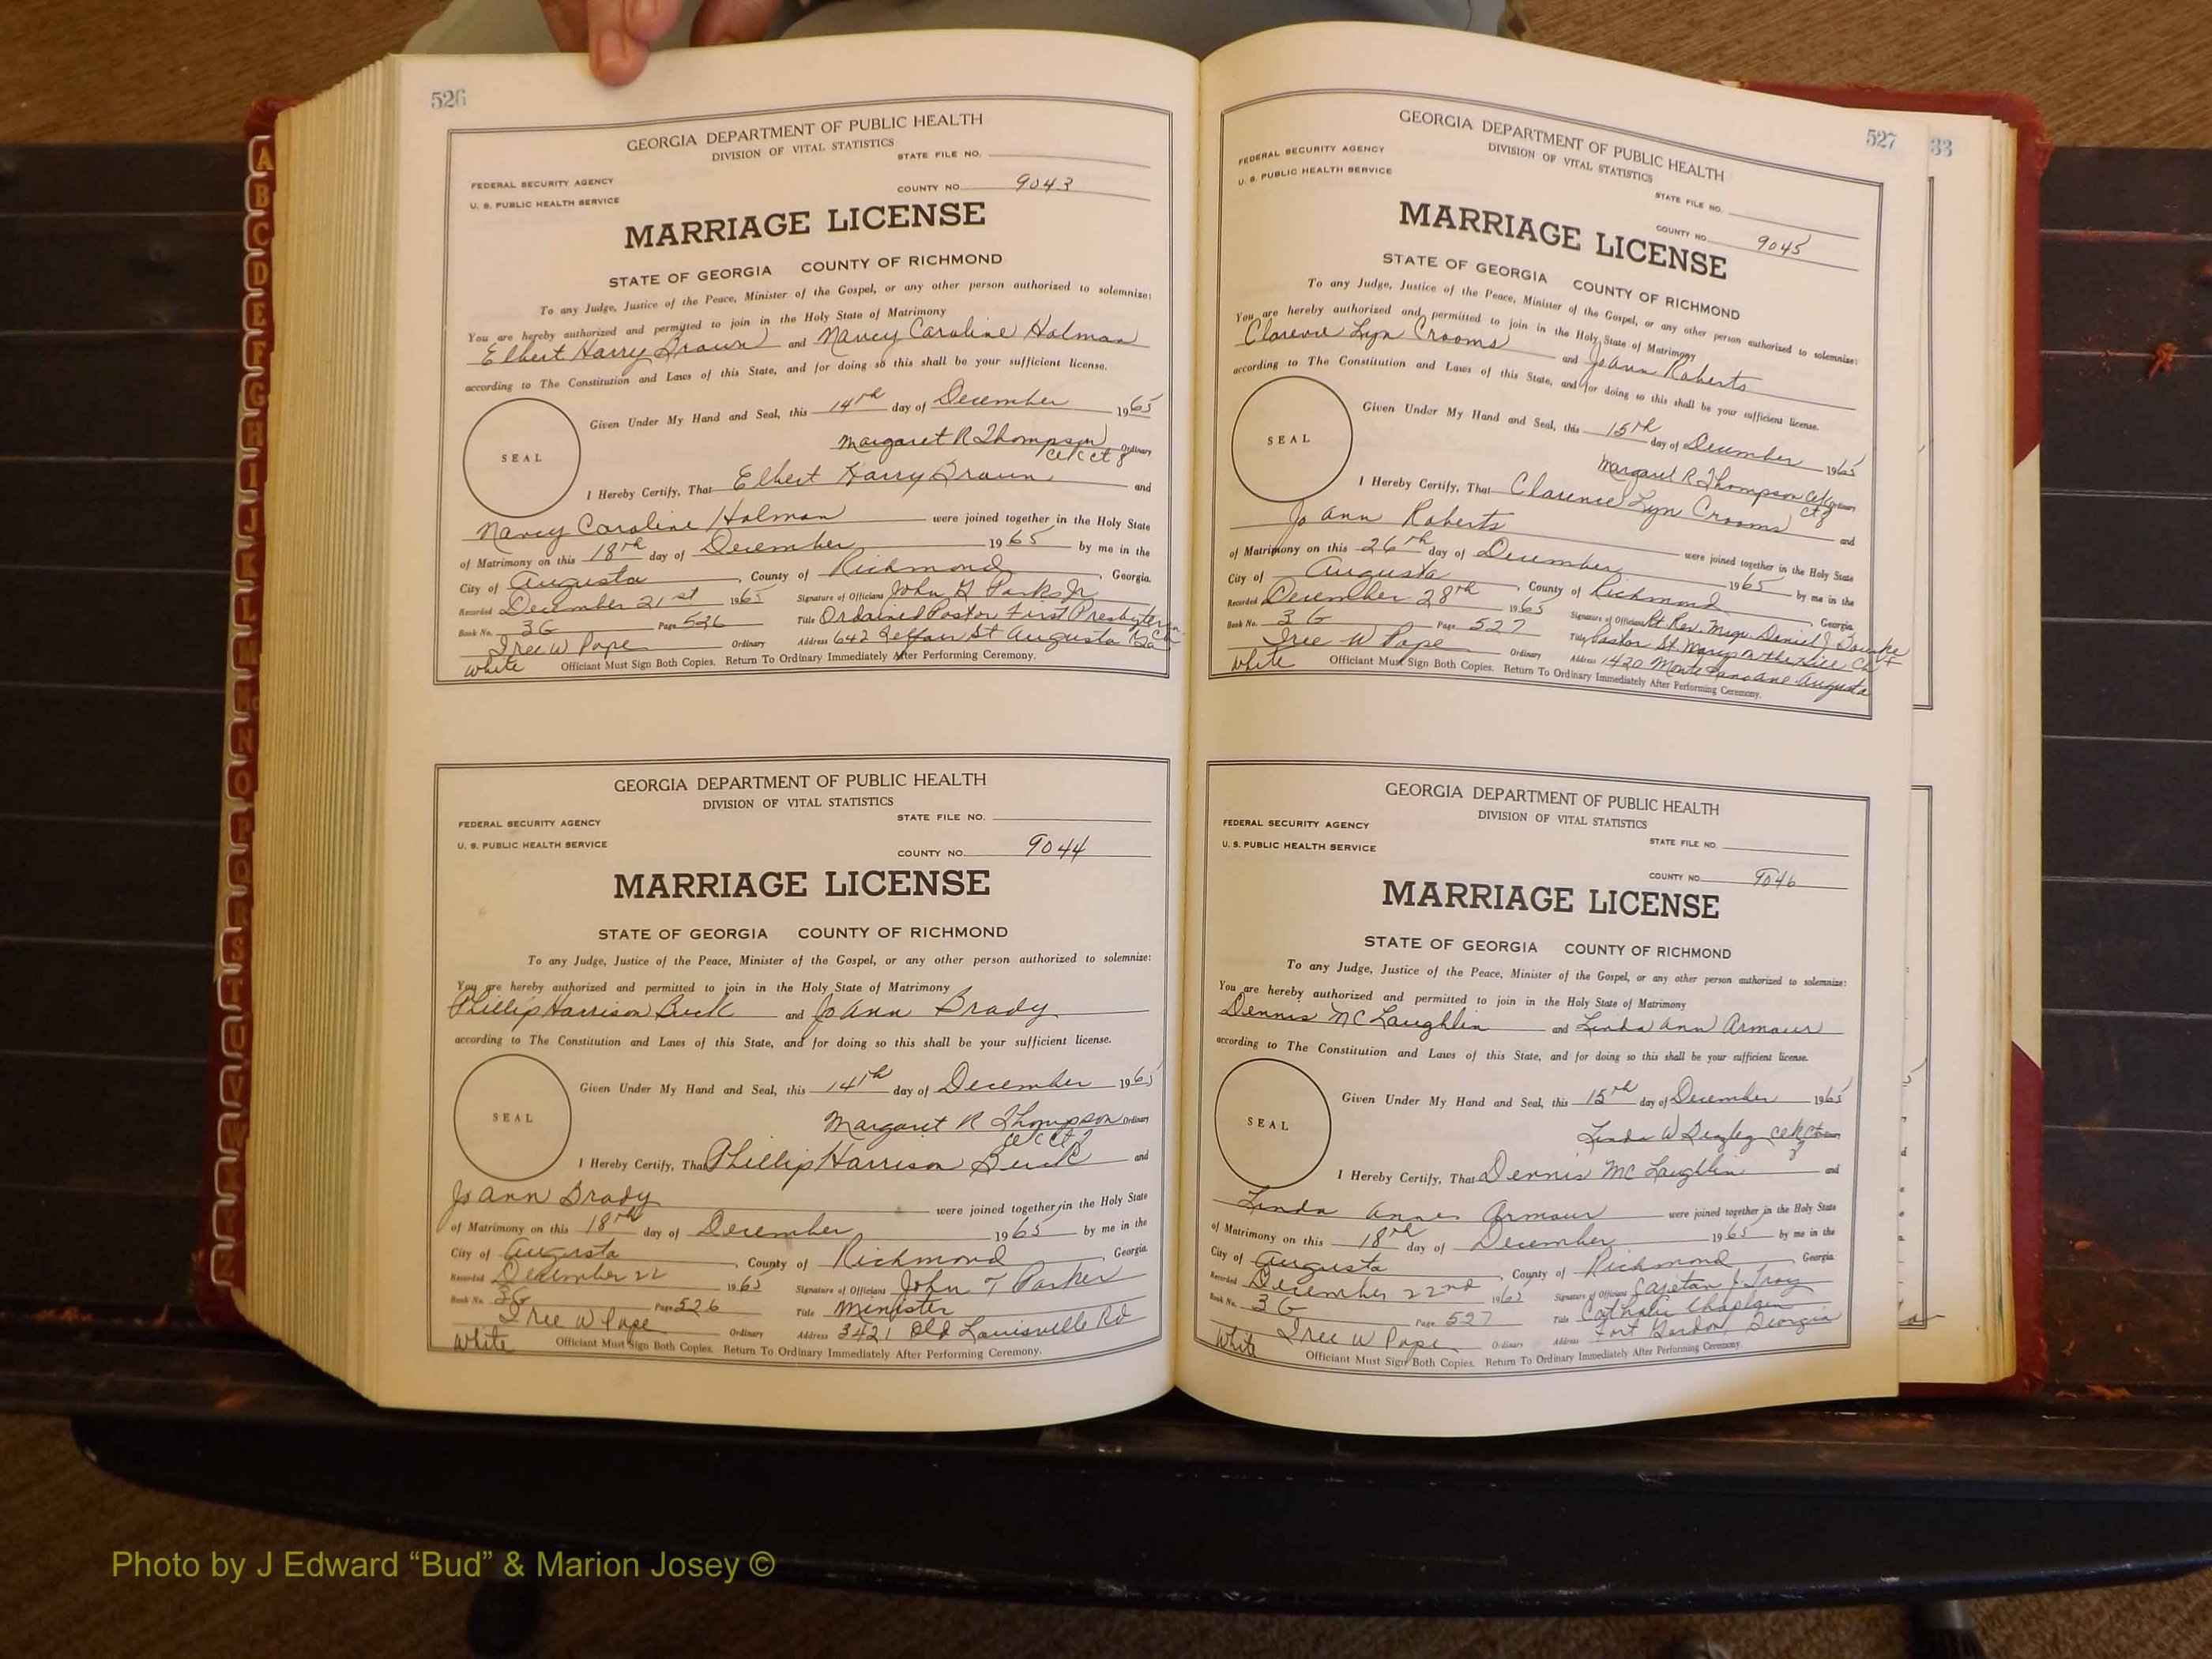 526
GEORGIA DEPARTMENT OF PUBLIC HEALTH
DIVISION OF VITAL STATISTICS
STATE FILE NO.
FEDERAL SECURITY AGENCY
U. S. PUBLIC HEALTH SERVICE
COUNTY NO. 9043
MARRIAGE LICENSE
STATE OF GEORGIA COUNTY OF RICHMOND
To any Judge, Justice of the Peace, Minister of the Gospel, or any other person authorized to solemnize:
You are hereby authorized and permitted to join in the Holy State of Matrimony
Elbert Harry Braun and Nancy Caroline Holman
according to The Constitution and Laws of this State, and for doing so this shall be your sufficient license.
Given Under My Hand and Seal, this 14th day of December 1965
SEAL
Margaret R Thompson Ordinary
I Hereby Certify, That Elbert Harry Braun and
Nancy Caroline Holman were joined together in the Holy State
of Matrimony on this 18th day of December 1965 by me in the
City of Augusta, County of Richmond, Georgia.
Recorded December 21st 1965 Signature of Officiant John G Parks Jr
Book No. 3G Page 526 Title Ordained Pastor First Presbyterian
Iree W Pope Ordinary Address 642 Telfair St Augusta Ga
White Officiant Must Sign Both Copies. Return To Ordinary Immediately After Performing Ceremony.
GEORGIA DEPARTMENT OF PUBLIC HEALTH
DIVISION OF VITAL STATISTICS
STATE FILE NO.
FEDERAL SECURITY AGENCY
U. S. PUBLIC HEALTH SERVICE
COUNTY NO. 9044
MARRIAGE LICENSE
STATE OF GEORGIA COUNTY OF RICHMOND
To any Judge, Justice of the Peace, Minister of the Gospel, or any other person authorized to solemnize:
You are hereby authorized and permitted to join in the Holy State of Matrimony
Phillip Harrison Buck and Jo Ann Brady
according to The Constitution and Laws of this State, and for doing so this shall be your sufficient license.
Given Under My Hand and Seal, this 14th day of December 1965
SEAL
Margaret R Thompson Ordinary
I Hereby Certify, That Phillip Harrison Buck and
Jo Ann Brady were joined together in the Holy State
of Matrimony on this 18th day of December 1965 by me in the
City of Augusta, County of Richmond, Georgia.
Recorded December 22 1965 Signature of Officiant John T Parker
Book No. 3G Page 526 Title Minister
Iree W Pope Ordinary Address 3421 Old Louisville Rd
White Officiant Must Sign Both Copies. Return To Ordinary Immediately After Performing Ceremony.
527
33
GEORGIA DEPARTMENT OF PUBLIC HEALTH
DIVISION OF VITAL STATISTICS
FEDERAL SECURITY AGENCY
U. S. PUBLIC HEALTH SERVICE
STATE FILE NO.
COUNTY NO. 9045
MARRIAGE LICENSE
STATE OF GEORGIA COUNTY OF RICHMOND
To any Judge, Justice of the Peace, Minister of the Gospel, or any other person authorized to solemnize:
You are hereby authorized and permitted to join in the Holy State of Matrimony
Clarence Lyn Crooms and Jo Ann Roberts
according to The Constitution and Laws of this State, and for doing so this shall be your sufficient license.
Given Under My Hand and Seal, this 15th day of December 1965
SEAL
Margaret R Thompson Ordinary
I Hereby Certify, That Clarence Lyn Crooms and
Jo Ann Roberts were joined together in the Holy State
of Matrimony on this 26th day of December 1965 by me in the
City of Augusta, County of Richmond, Georgia.
Recorded December 28th 1965 Signature of Officiant Rt Rev. Msgr. Daniel J. Bourke
Book No. 3G Page 527 Title Pastor St Marys on the Hill Ch
Iree W Pope Ordinary Address 1420 Monte Sano Ave Augusta
White Officiant Must Sign Both Copies. Return To Ordinary Immediately After Performing Ceremony.
GEORGIA DEPARTMENT OF PUBLIC HEALTH
DIVISION OF VITAL STATISTICS
FEDERAL SECURITY AGENCY
U. S. PUBLIC HEALTH SERVICE
STATE FILE NO.
COUNTY NO. 9046
MARRIAGE LICENSE
STATE OF GEORGIA COUNTY OF RICHMOND
To any Judge, Justice of the Peace, Minister of the Gospel, or any other person authorized to solemnize:
You are hereby authorized and permitted to join in the Holy State of Matrimony
Dennis McLaughlin and Linda Ann Armour
according to The Constitution and Laws of this State, and for doing so this shall be your sufficient license.
Given Under My Hand and Seal, this 15th day of December 1965
SEAL
Linda W
I Hereby Certify, That Dennis McLaughlin and
Linda Anne Armour were joined together in the Holy State
of Matrimony on this 18th day of December 1965 by me in the
City of Augusta, County of Richmond, Georgia.
Recorded December 22nd 1965 Signature of Officiant Cajetan J. Troy
Book No. 3G Page 527 Title Catholic Chaplain
Iree W Pope Ordinary Address Fort Gordon, Georgia
White Officiant Must Sign Both Copies. Return To Ordinary Immediately After Performing Ceremony.
A
B
C
D
E
F
G
H
I
J
K
L
M
Mc
N
O
P
Q
R
S
T
U
V
W
Photo by J Edward “Bud” & Marion Josey ©